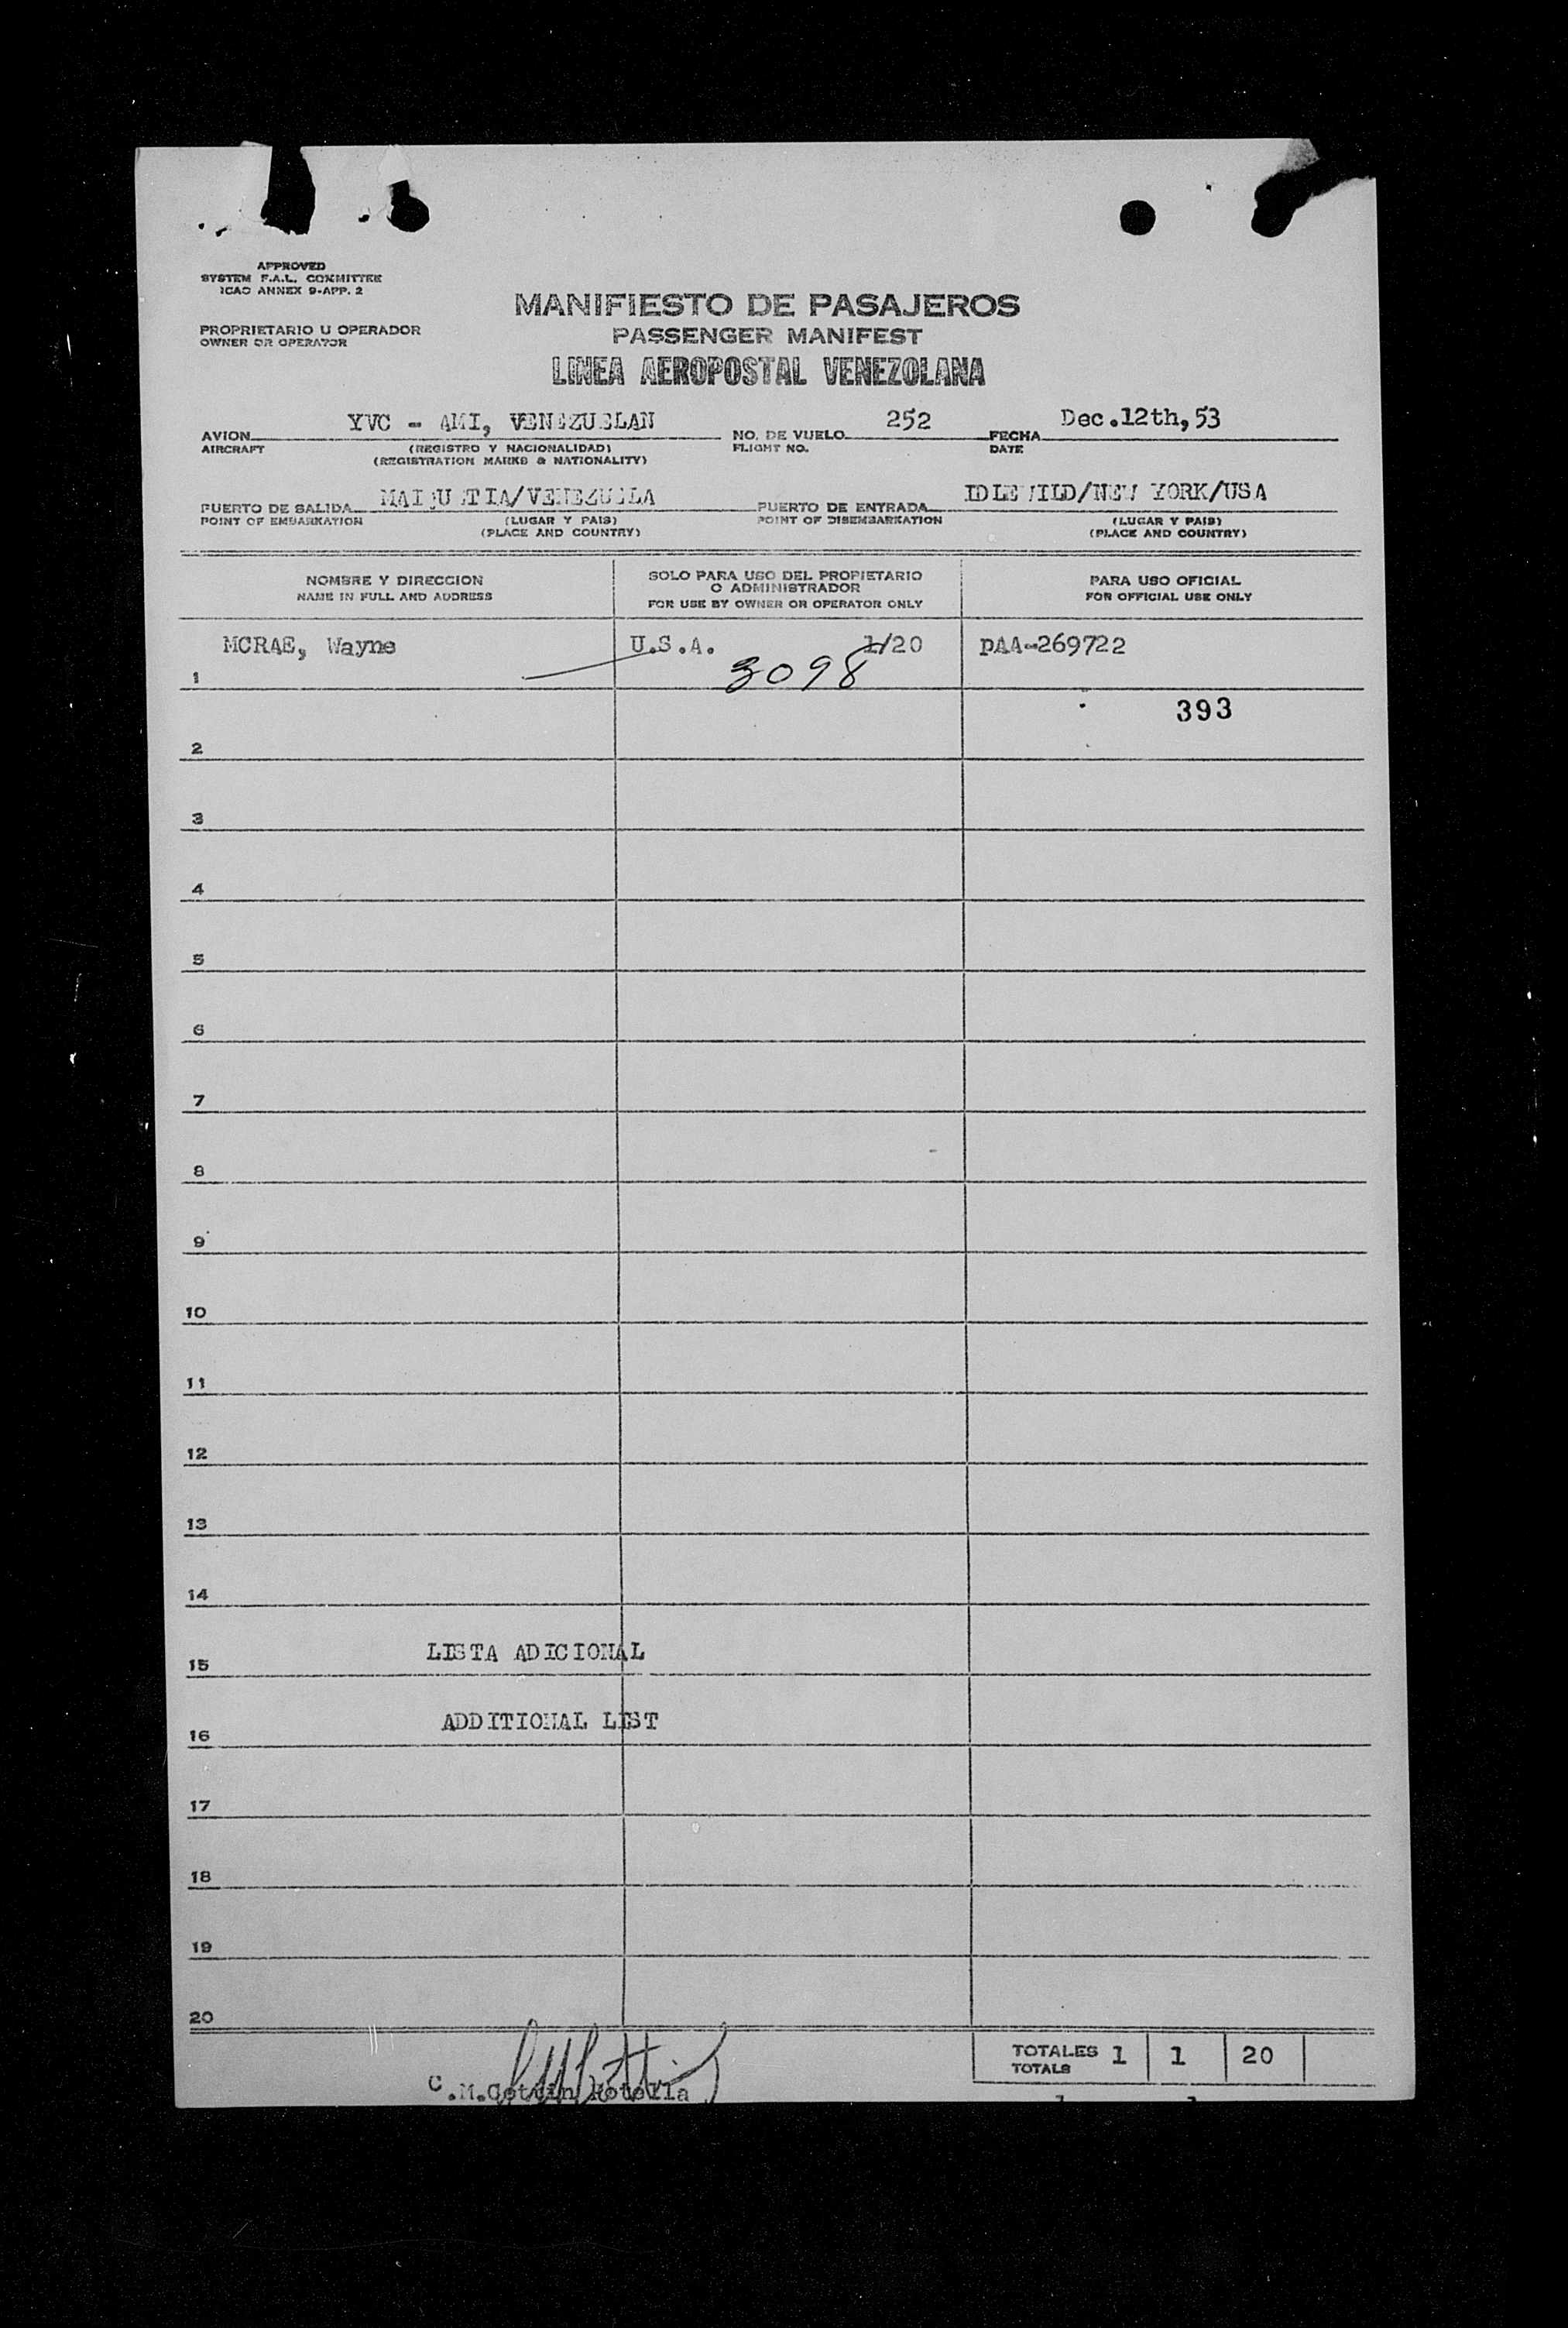 APPROVED
SYSTEM F.A.L. COMMITTEE
ICAO ANNEX 9-APP. 2
MANIFIESTO DE PASAJEROS
PROPRIETARIO U OPERADOR
OWNER OR OPERATOR
PASSENGER MANIFEST
LINEA AEROPOSTAL VENEZOLANA
AVION YVC - AMI, VENEZUELAN NO. DE VUELO 252 FECHA Dec.12th,53
AIRCRAFT (REGISTRO Y NACIONALIDAD) FLIGHT NO. DATE
(REGISTRATION MARKS & NATIONALITY)
PUERTO DE SALIDA MAIQUETIA/VENEZUELA PUERTO DE ENTRADA IDLEWILD/NEW YORK/USA
POINT OF EMBARKATION (LUGAR Y PAIS) POINT OF DISEMBARKATION (LUGAR Y PAIS)
(PLACE AND COUNTRY) (PLACE AND COUNTRY)
NOMBRE Y DIRECCION
NAME IN FULL AND ADDRESS
SOLO PARA USO DEL PROPIETARIO
O ADMINISTRADOR
FOR USE BY OWNER OR OPERATOR ONLY
PARA USO OFICIAL
FOR OFFICIAL USE ONLY
MCRAE, Wayne U.S.A. 1/20 pAA-269722
1 3098
393
2
3
4
5
6
7
8
9
10
11
12
13
14
LISTA ADICIONAL
15
ADDITIONAL LIST
16
17
18
19
20
TOTALES 1 1 20
TOTALS
C.M.